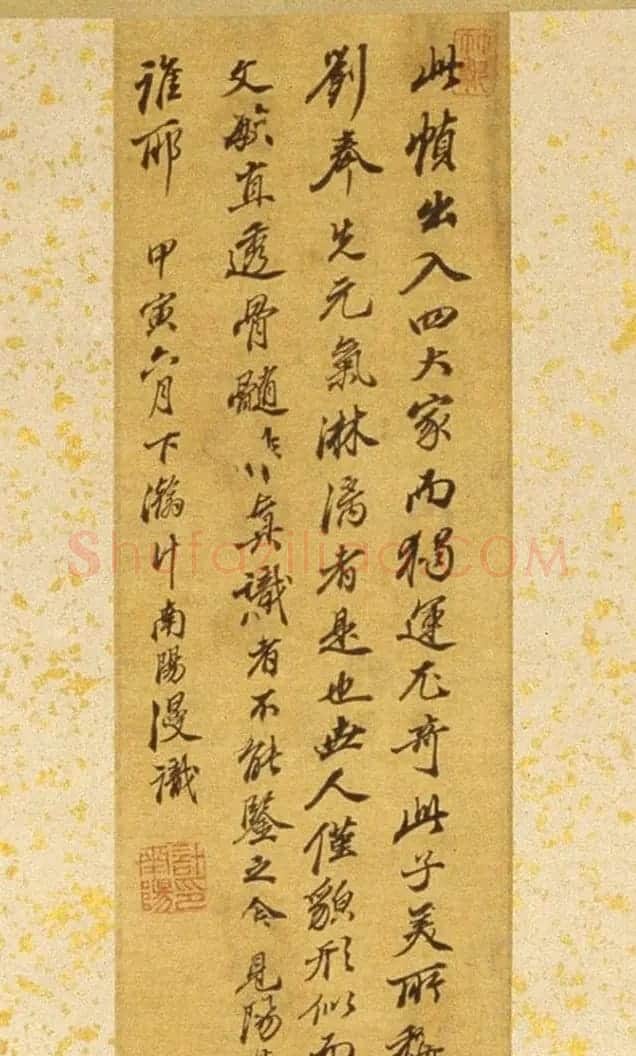 此幀出入四大家而獨運尤奇此子美所稱
劉奉先元氣淋漓者是也世人僅貌形似而
文直透骨髓識者不能鑒之今見陽
誰耶 甲寅六月下瀚計南陽漫識
計南陽印
Shufaziliao.COM